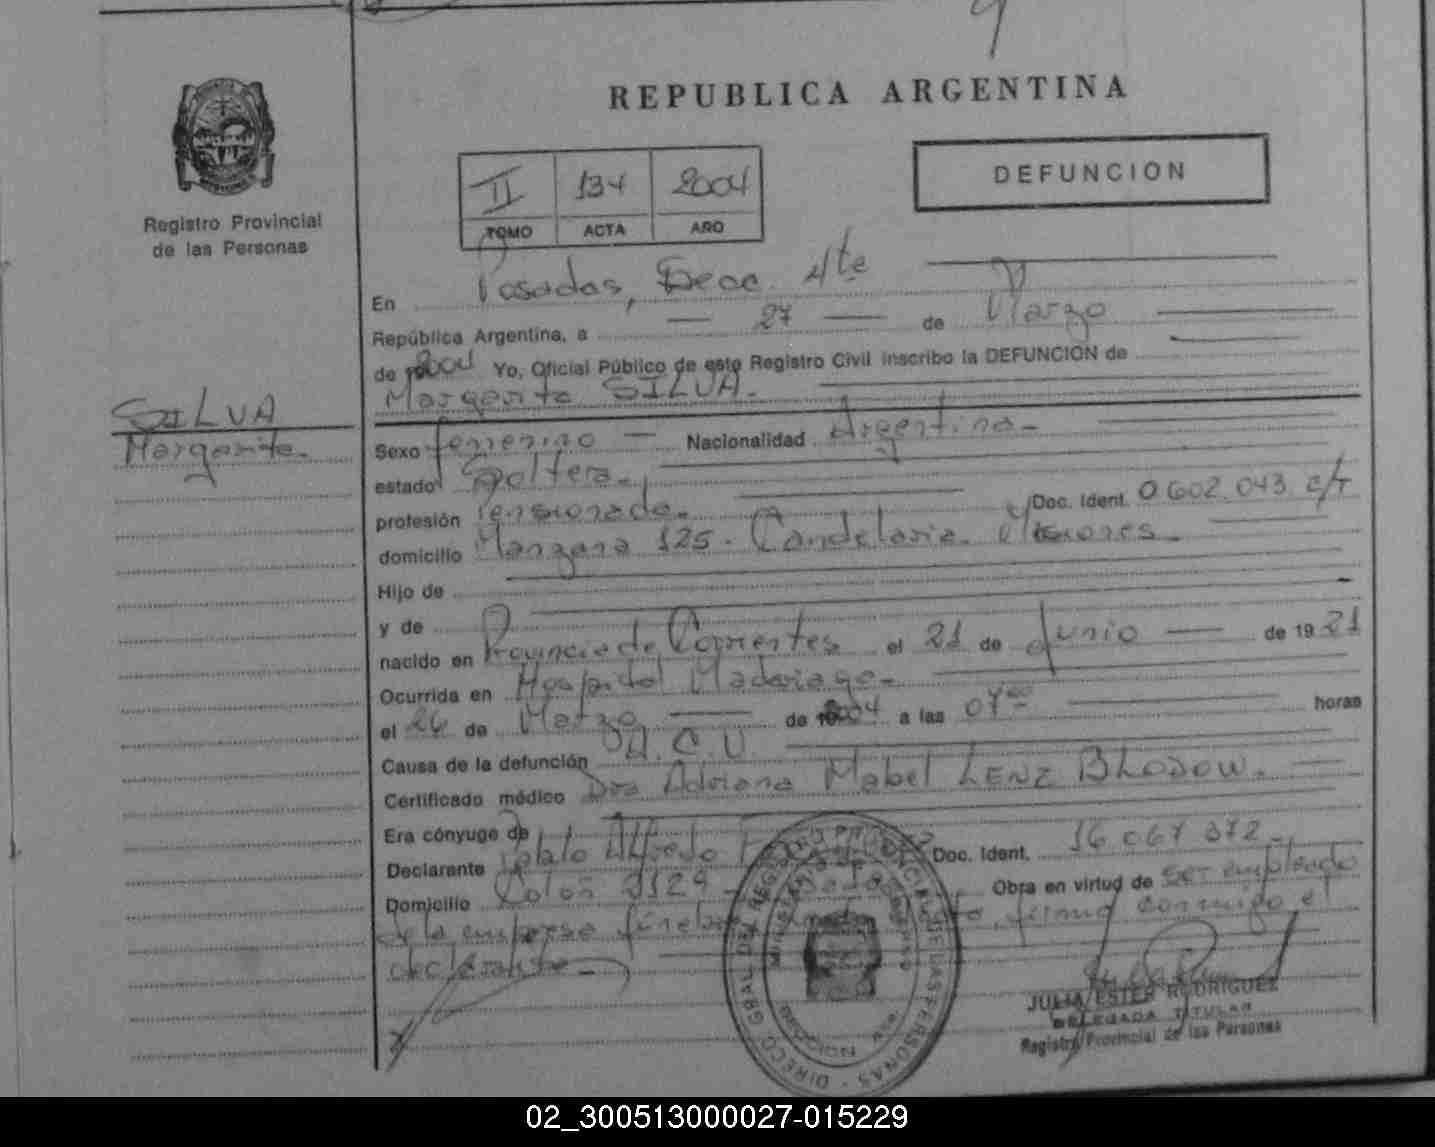 REPUBLICA ARGENTINA
Registro Provincial
de las Personas
II 134 2004
TOMO ACTA AÑO
DEFUNCION
En Posadas, Secc. 4te
República Argentina, a 27 de Marzo
de 2004 Yo, Oficial Público de este Registro Civil inscribo la DEFUNCION de
Margarita SILVA.
SILVA
Margarita.
Sexo femenino Nacionalidad Argentina
estado Soltera.
profesión Pensionada. Doc. Ident. 0.602.043 c/T
domicilio Manzana 125. Candelaria. Misiones.
Hijo de
y de
nacido en Provincia de Corrientes el 21 de Junio de 19 21
Ocurrida en Hospital Madariaga
el 26 de Marzo de 2004 a las 07 horas
Causa de la defunción A.C.V.
Certificado médico Dra Adriana Mabel LENZ BLODOW.
Era cónyuge de
Declarante Alfredo Doc. Ident. 16.067.372
Domicilio Colon Obra en virtud de ser empleado
de la empresa fúnebre firma conmigo el
declarante
DIRECC. GRAL DEL REGISTRO PROVINCIAL DE LAS PERSONAS
MINISTERIO DE GOBIERNO
JULIA ESTER RODRIGUEZ
DELEGADA TITULAR
Registro Provincial de las Personas
02_300513000027-015229